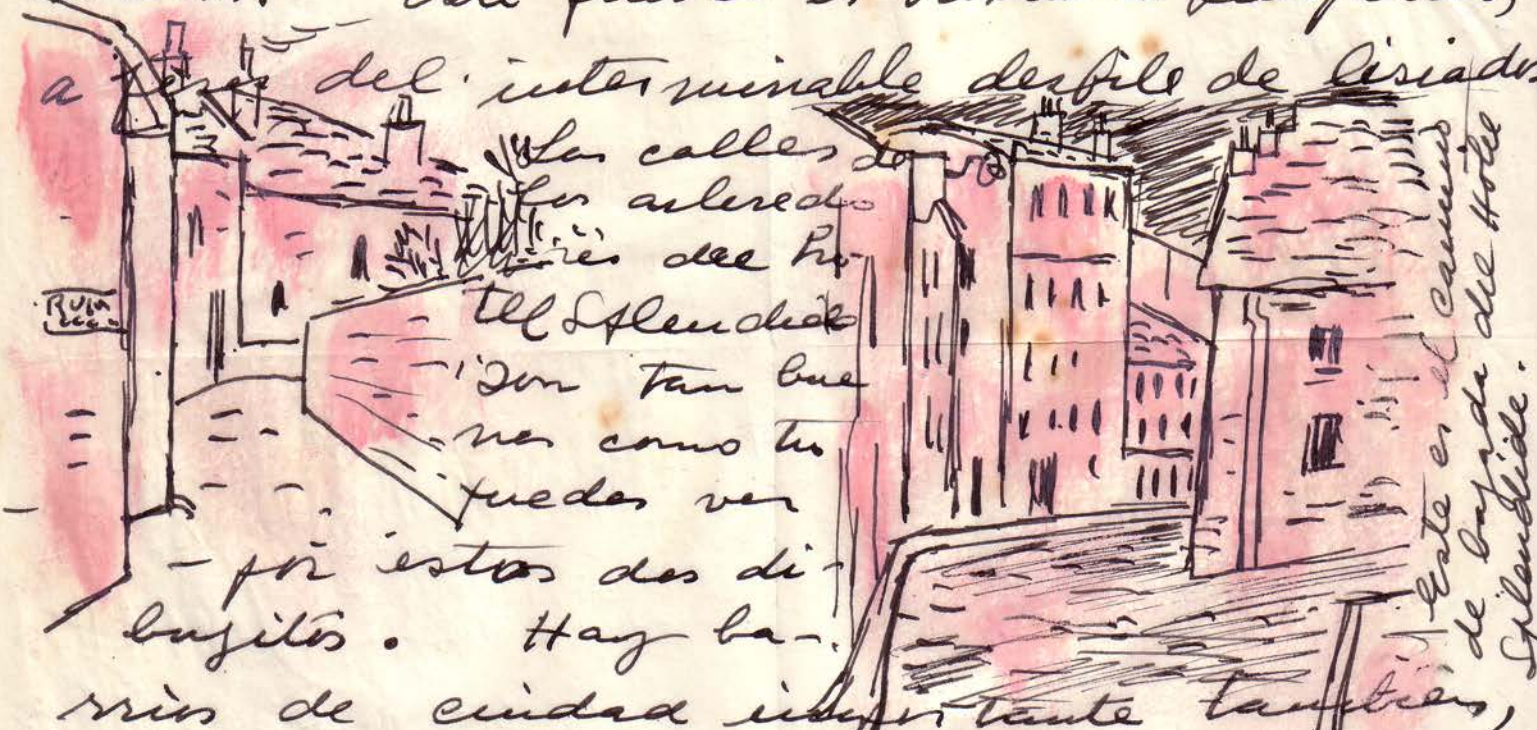 Este pueblo es
a pesar del interminable desfile de lisiados
Las calles de
los alrededo
res del ho-
tel Splendide
son tan bue
nas como tu
puedes ver
por estos dos di-
bujitos. Hay ba-
rrios de ciudad importante también,
Este es el camino
de bajada del Hotel
Splendide.